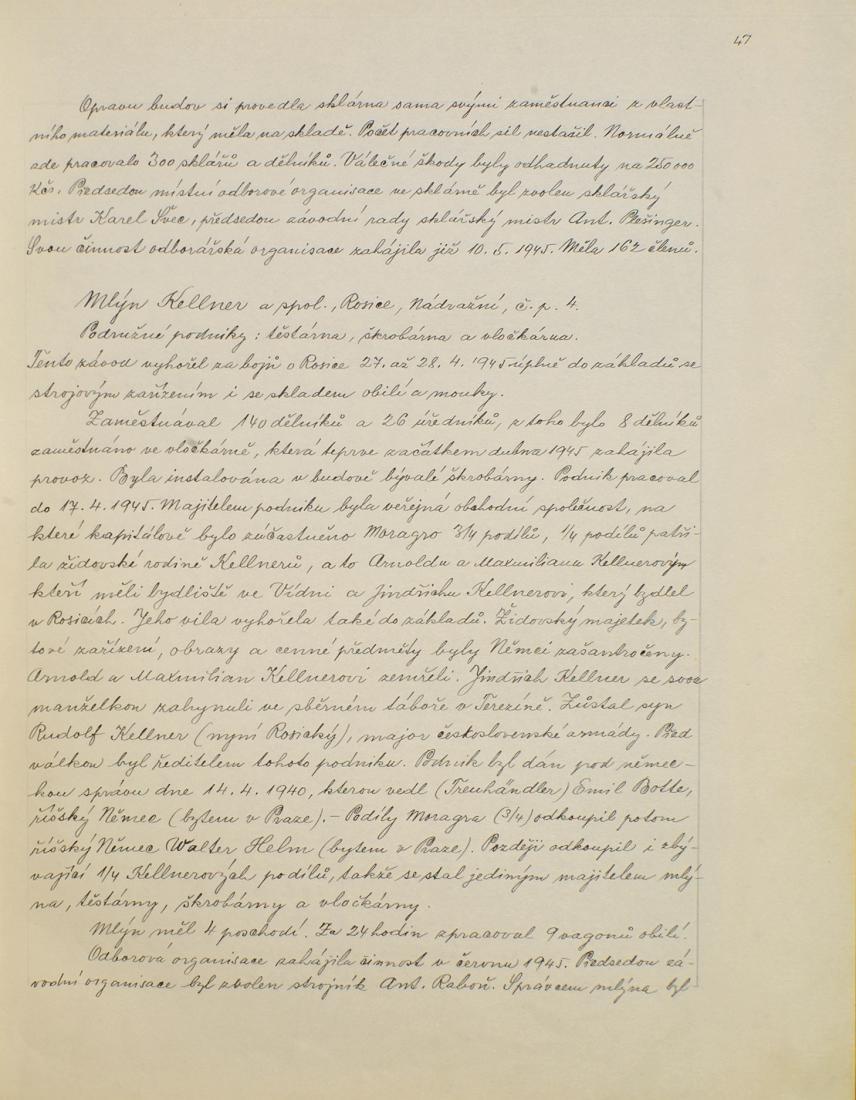 47
Opravu budov si provedla sklárna sama svými zaměstnanci z vlast-
ního materiálu, který měla na skladě. Počet pracovních sil nestačil. Normálně
zde pracovalo 300 sklářů a dělníků. Válečné škody byly odhadnuty na 250 000
Kčs. Předsedou místní odborové organisace ve sklárně byl zvolen sklářský
mistr Karel Švec, předsedou závodní rady sklářský mistr Ant. Plešinger.
Svou činnost odborářská organisace zahájila již 10. 5. 1945. Měla 162 členů.
Mlýn Kellner a spol., Rosice, Nádražní, č. p. 4.
Podružné podniky: těstárna, škrobárna a vločkárna.
Tento závod vyhořel za bojů o Rosice 27. až 28. 4. 1945 úplně do základů se
strojovým zařízením i se skladem obilí a mouky.
Zaměstnával 140 dělníků a 26 úředníků, z toho bylo 8 dělníků
zaměstnáno ve vločkárně, která teprve začátkem dubna 1945 zahájila
provoz. Byla instalována v budově bývalé škrobárny. Podnik pracoval
do 17. 4. 1945. Majitelem podniku byla veřejná obchodní společnost, na
které kapitálově bylo zúčastněno Moragro 3/4 podílů, 1/4 podílů patři-
la židovské rodině Kellnerů, a to Arnoldu a Maxmilianu Kellnerovým
kteří měli bydliště ve Vídni a Jindřichu Kellnerovi, který bydlel
v Rosicích. Jeho vila vyhořela také do základů. Židovský majetek, by-
tové zařízení, obrazy a cenné předměty byly Němci zašantročeny.
Arnold a Maxmilian Kellnerovi zemřeli. Jindřich Kellner se svou
manželkou zahynuli ve sběrném táboře v Terezíně. Zůstal syn
Rudolf Kellner (nyní Rosický), major československé armády. Před
válkou byl ředitelem tohoto podniku. Podnik byl dán pod němec-
kou správu dne 14. 4. 1940, kterou vedl (Treuhändler) Emil Botte,
říšský Němec (bytem v Praze). - Podíly Moragra (3/4) odkoupil potom
říšský Němec Walter Helm (bytem v Praze). Později odkoupil i zbý-
vající 1/4 Kellnerových podílů, takže se stal jediným majitelem mlý-
na, těstárny, škrobárny a vločkárny.
Mlýn měl 4 poschodí. Za 24 hodin zpracoval 9 vagonů obilí.
Odborová organisace zahájila činnost v červnu 1945. Předsedou zá-
vodní organisace byl zvolen strojník Ant. Raboň. Správcem mlýna byl